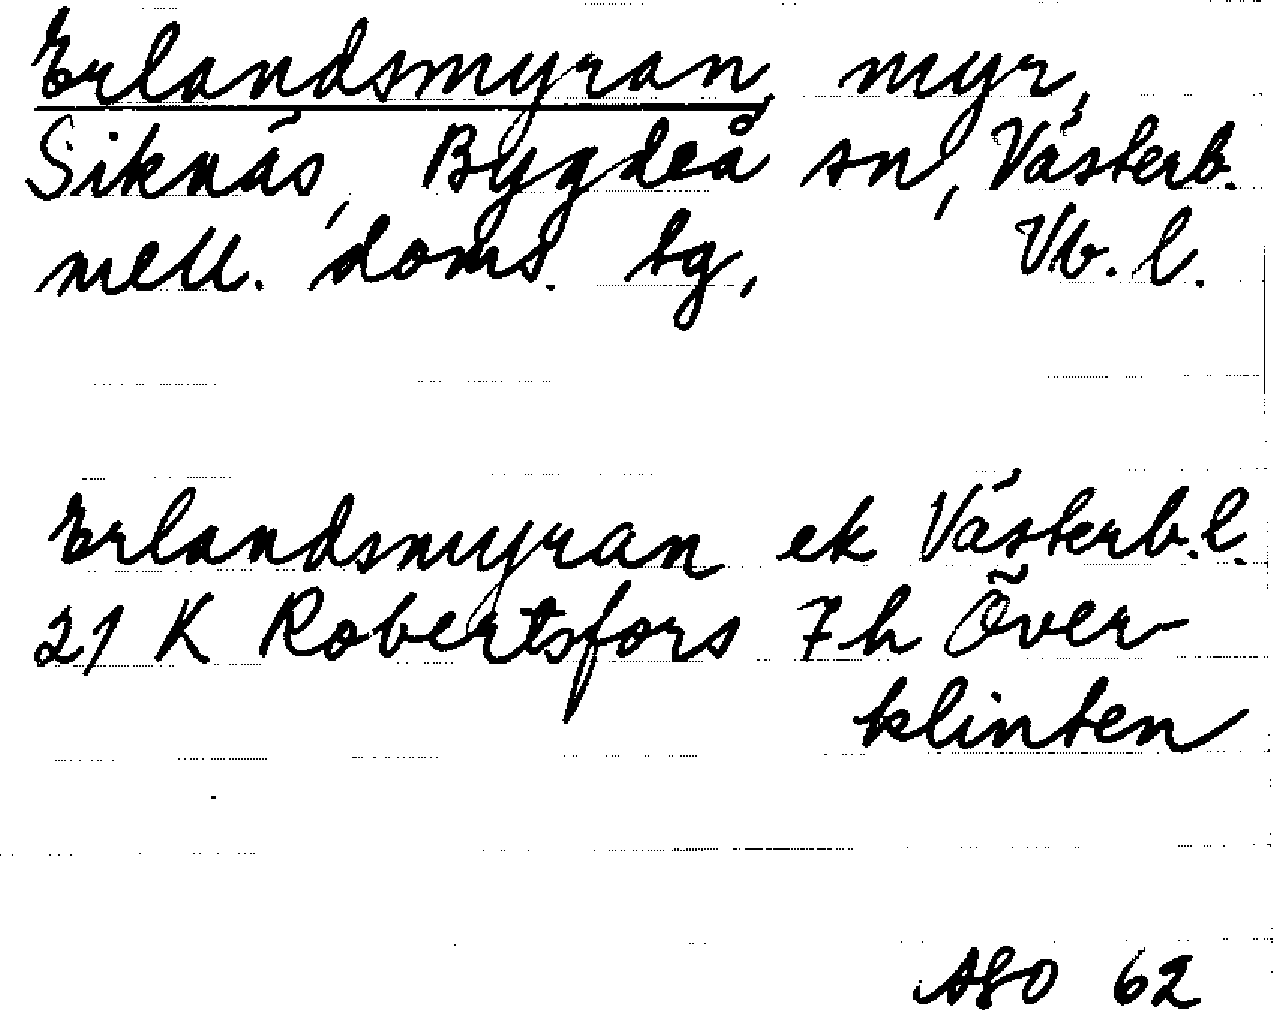 Erlandsmyran, myr,
Siknäs, Bygdeå sn, Västerb.
mell. doms. tg, Vb. l.
Erlandsmyran ek Västerb. l.
21 K Robertsfors 7h Över-
klinten
ASO 62